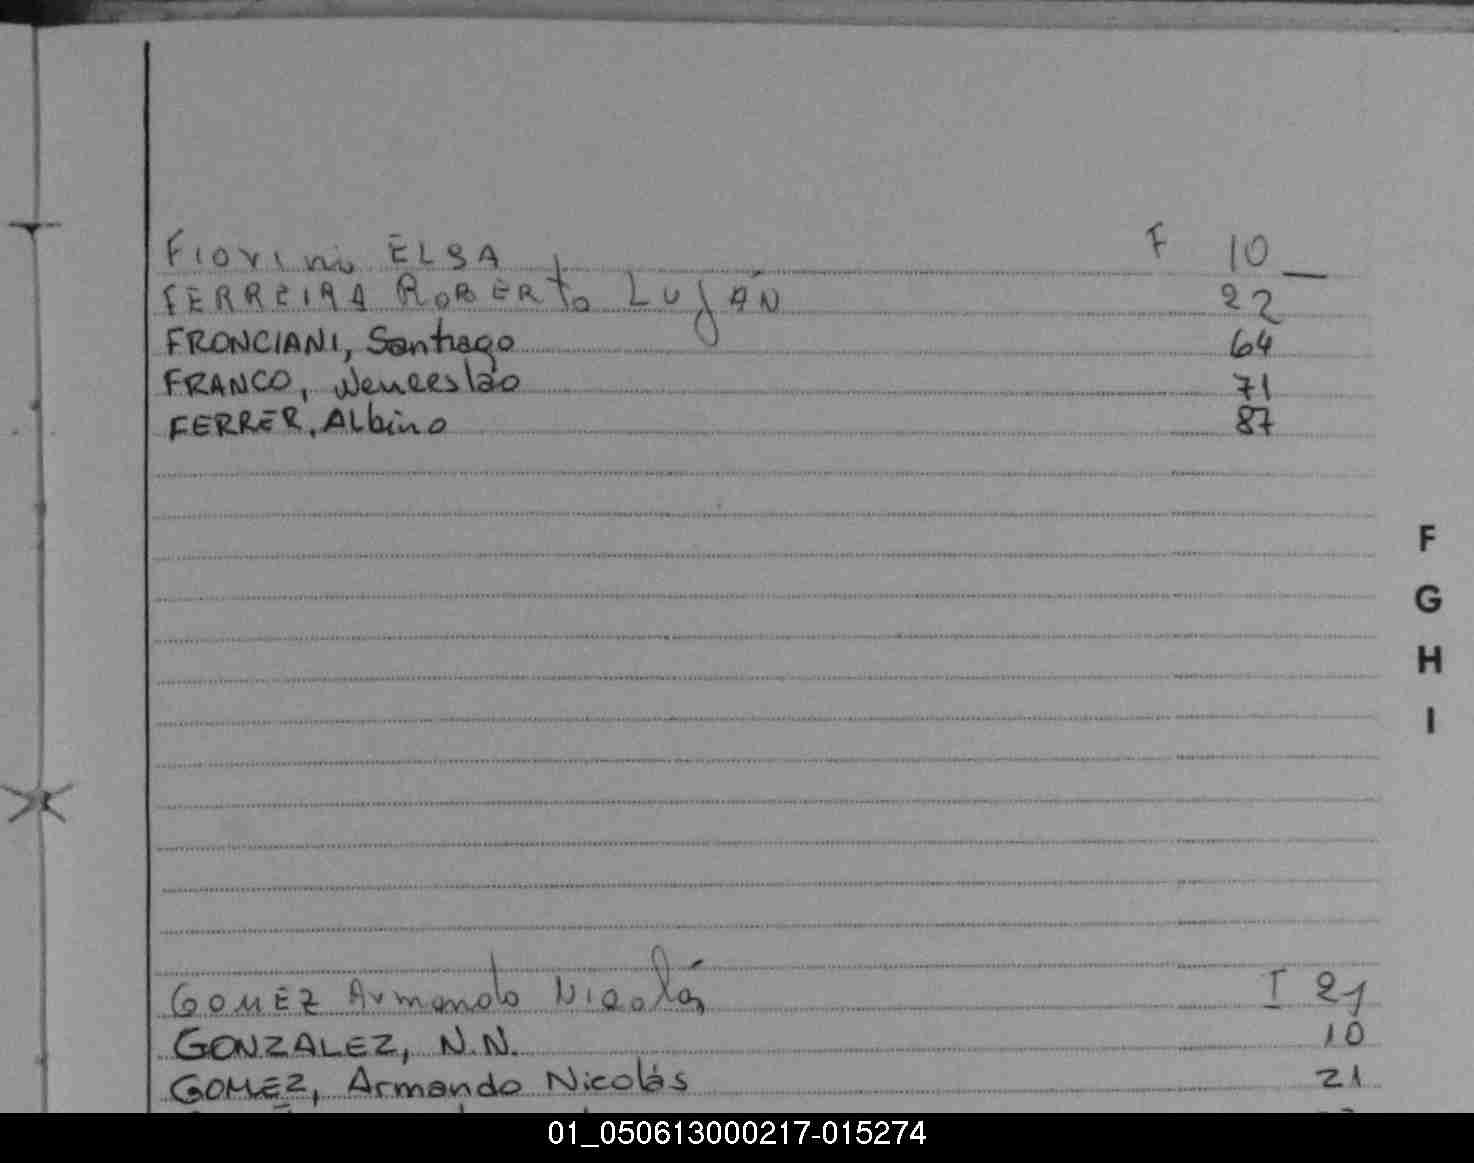 Fiorini ELSA F 10
FERREIRA ROBERTo LujÁN 22
FRONCIANI, Santiago 64
FRANCO, Wenceslao 71
FERRER, Albino 87
F
G
H
I
GOMEZ Armando Nicolás I 21
GONZALEZ, N.N. 10
GOMEZ, Armando Nicolás 21
01_050613000217-015274